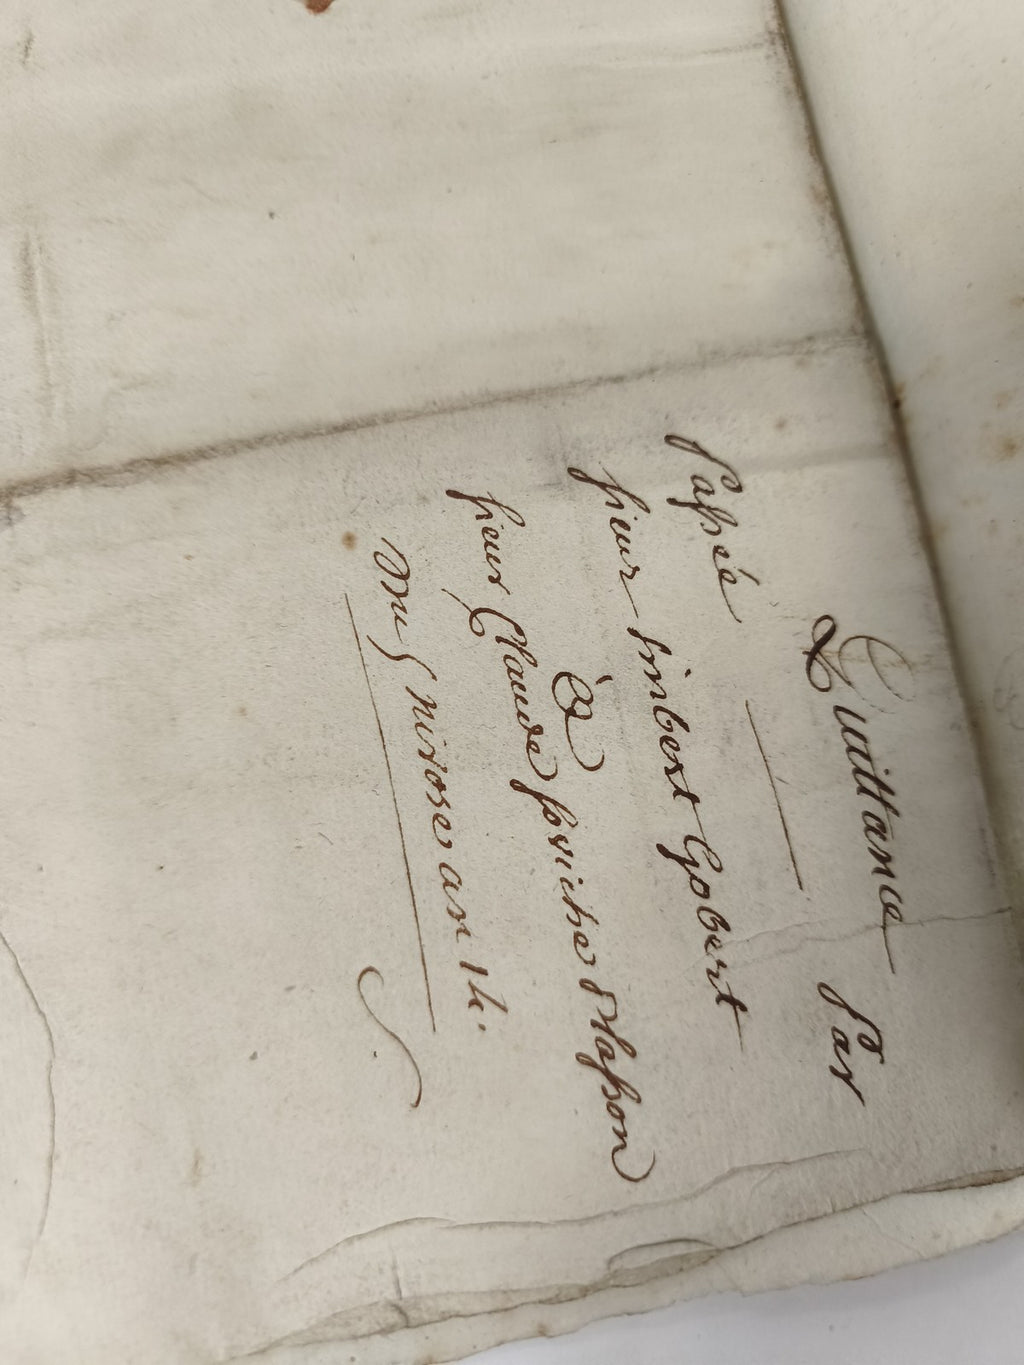 Quittance Par
Passée
sieur Imbert Gobert
à
sieur Claude Masson
Du 5 nivose an 14.